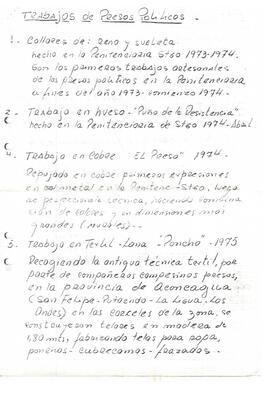 TRABAJOS de Presos Politicos.
1- Collares de: reno y suela
hecho en la Penitenciaria Stgo 1973-1974.
Son los primeros trabajos artesanales
de los presos politicos en la Penitenciaria
a fines del año 1973- comienzo 1974.
2- Trabajo en hueso - "Puño de la Resistencia"
hecho en la Penitenciaria de Stgo 1974-Abril
4. Trabajo en Cobre "EL Preso" 1974.
Repujado en cobre primeras expresiones
en metal en la Penitenc-Stgo, luego
se perfecciona técnica, haciendo combina
ción de colores y en dimensiones mas
grandes (muebles).
5. Trabajo en Textil-Lana "Poncho"-1975
Recogiendo la antigua técnica textil, por
parte de compañeros campesinos presos,
en la provincia de Aconcagua
(San Felipe-Putaendo-La Ligua-Los
Andes) en las carceles de la zona, se
construyeron telares en madera de
1,80 mts, fabricando telas para ropa,
ponchos-cubrecamas-frazadas.